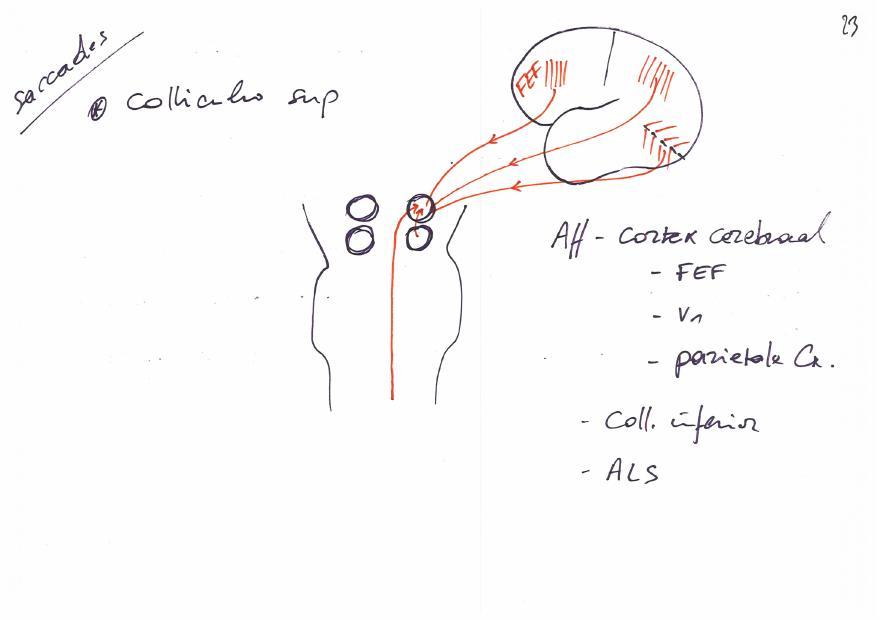 23
saccades
colliculus sup
FEF
Aff - cortex cerebraal
- FEF
- V1
- parietale Cx.
- Coll. inferior
- ALS